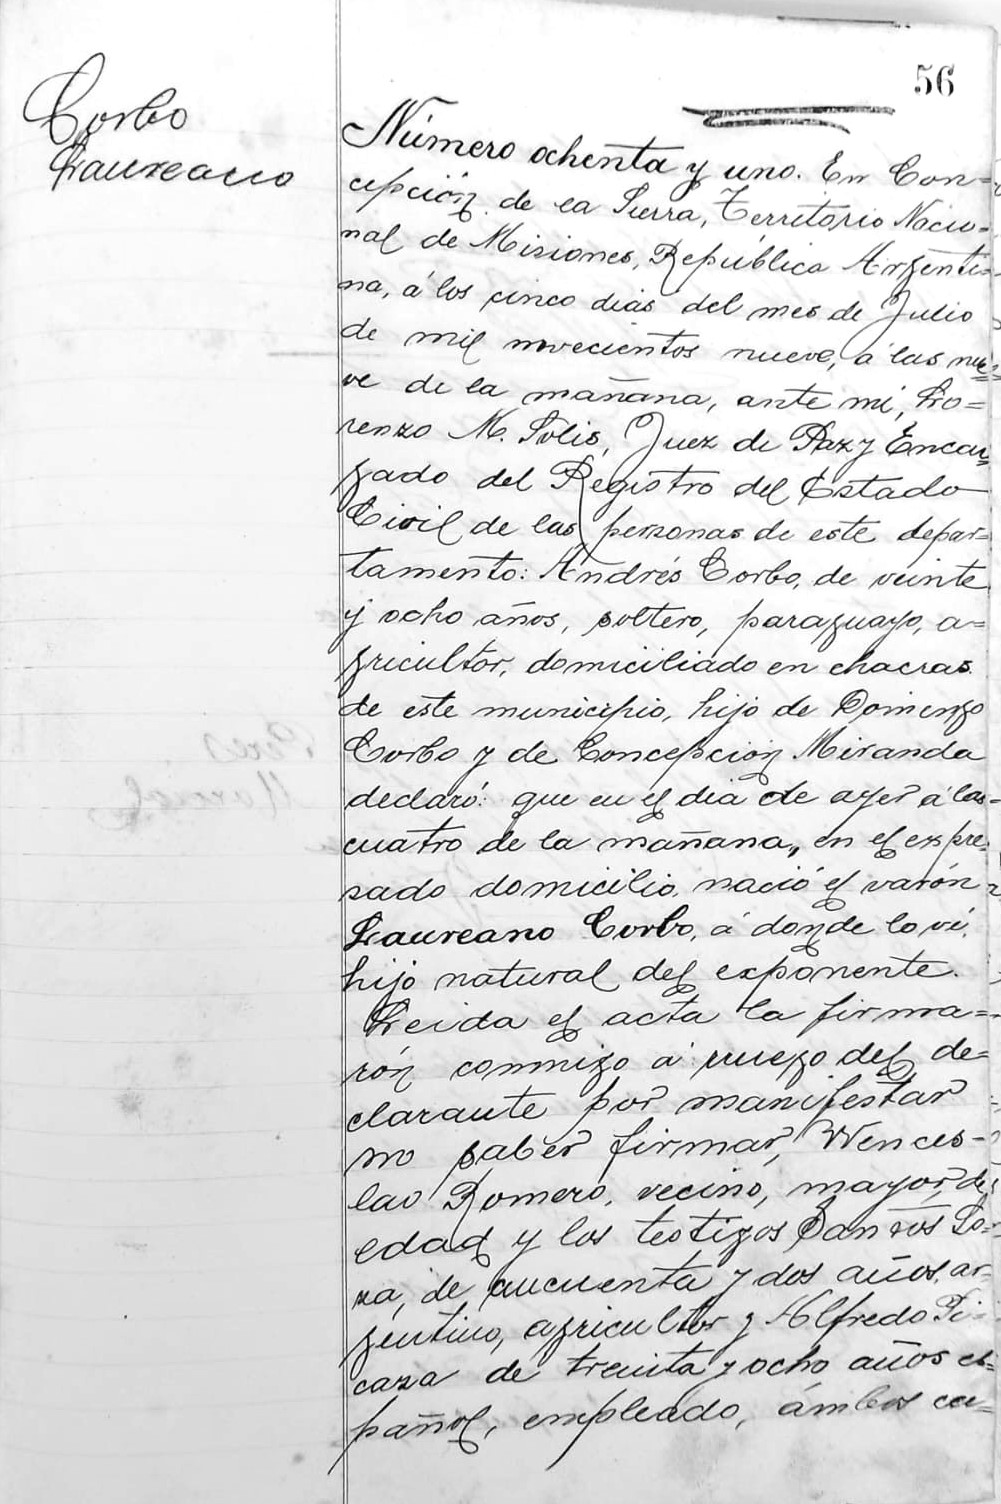 56
Corbo
Laureano
Número ochenta y uno. En Con=
cepción de la Sierra, Territorio Nacio=
nal de Misiones, República Argenti=
na, á los cinco dias del mes de Julio
de mil novecientos nueve, á las nue=
ve de la mañana, ante mi, Lo=
renzo M. Solis, Juez de Paz y Encar=
gado del Registro del Estado
Civil de las personas de este depar=
tamento: Andrés Corbo, de veinte
y ocho años, soltero, paraguayo, a=
gricultor, domiciliado en chacras
de este municipio, hijo de Domingo
Corbo y de Concepción Miranda
declaró: que en el dia de ayer á las
cuatro de la mañana, en el expre=
sado domicilio nació el varón
Laureano Corbo, á donde lo ví,
hijo natural del exponente.
Leida el acta la firma=
rón conmigo á ruego del de=
clarante por manifestar
no saber firmar, Wences=
lao Romero, vecino, mayor de
edad y los testigos Santos So=
sa, de cincuenta y dos años, ar=
gentino, agricultor y Alfredo
de treinta y ocho años es=
pañol, empleado, ámbos